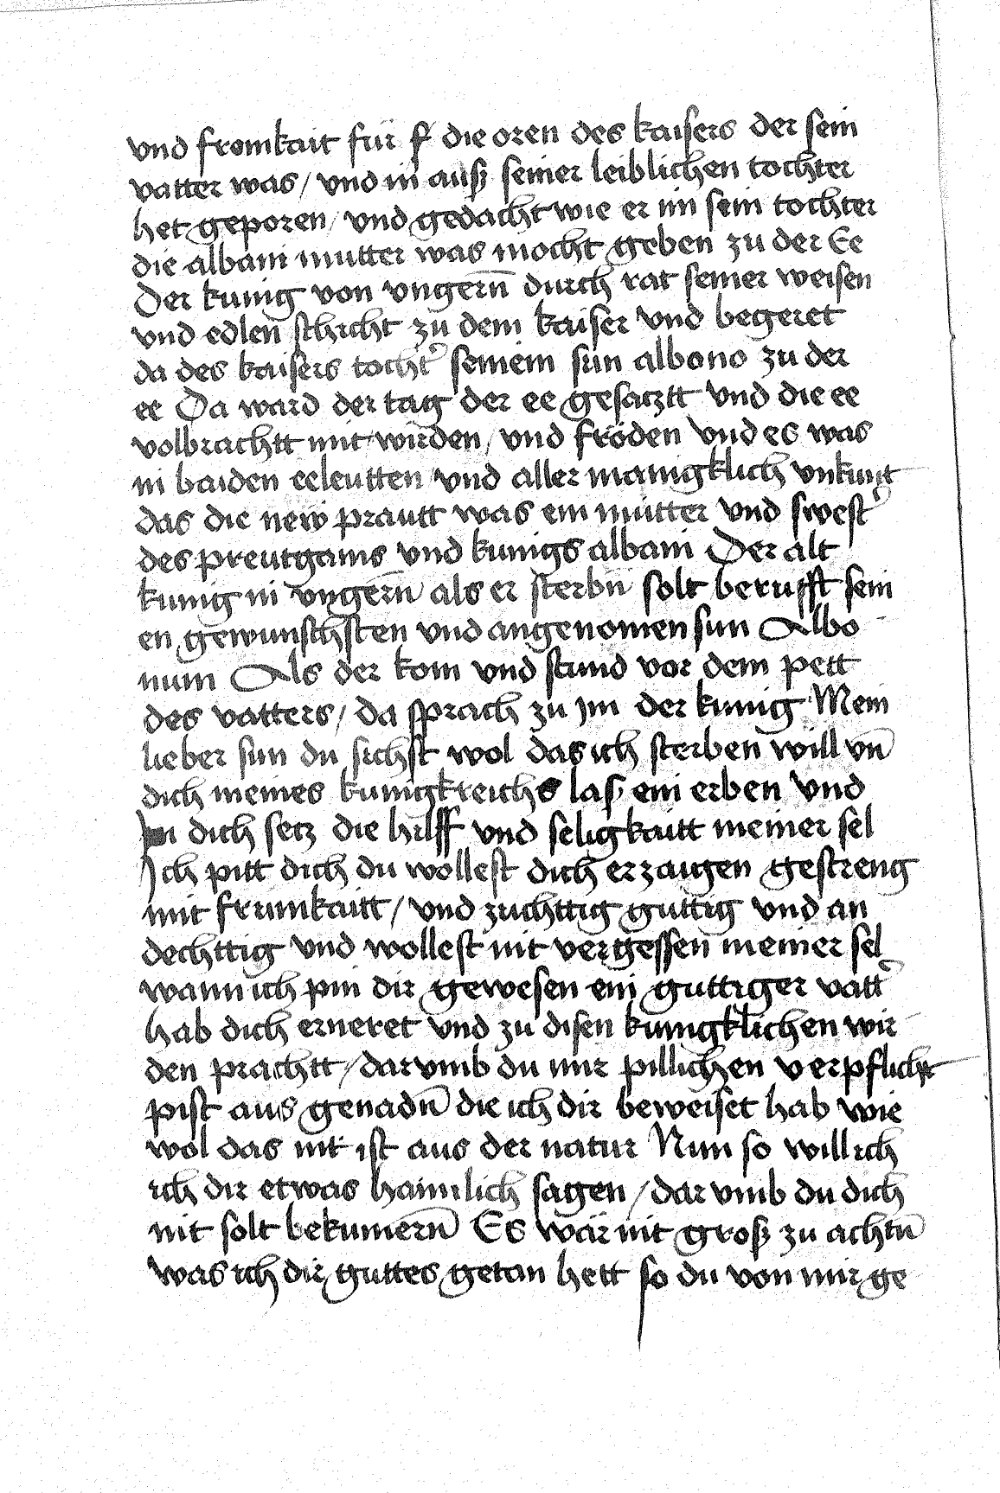 vnd fromkait für f die oren des kaisers der sein
vatter was / vnd in auß seiner leiblichen tochter
het geporen / vnd gedacht wie er im sein tochter
die albani mutter was mocht geben zu der Ee
Der kunig von vngern̄ durch rat seiner weisen
vnd edlen schicht zu dem kaiser vnd begeret
da des kaisers tocht' seinem sun albono zu der
ee Da ward der tag der ee gesatztt vnd die ee
volbrachtt mit wirden / vnd fröden vnd es was
in baiden eeleutten vnd aller manigklich vnkunt
das die new prautt was ein mutter vnd swest'
des preutgams vnd kunigs albani Der alt
kunig in vngern̄ als er sterbn̄ solt berufft sein
en gewunschsten vnd angenomen sun Albo
num Als der kom vnd stund vor dem pett
des vatters / da sprach zu jm der kunig Mein
lieber sun du sichst wol das ich sterben will vn̄
dich meines kunigkreichs laß ein erben vnd
Jn dich setz die hilff vnd seligkaitt meiner sel
Jch pitt dich du wollest dich erzaigen gestreng
mit frumkaitt / vnd zuchttig guttig vnd an
dechttig vnd wollest nit vergessen meiner sel
wann ich pin dir gewesen ein guttiger vatt'
hab dich erneret vnd zu disen kunigklichen wir
den prachtt / darvmb du mir pillichen verpflicht
pist aus genadn̄ die ich dir beweiset hab wie
wol das nit ist aus der natur Nun so will ich
ich dir etwas haimlich sagen / darvmb du dich
nit solt bekumern̄ Es wär nit groß zu achtn̄
was ich dir guttes getan hett so du von mir ge